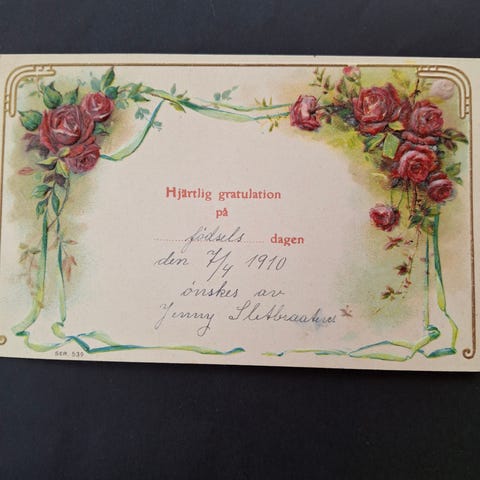 Hjärtlig gratulation
på
födsels dagen
den 7/4 1910
ønskes av
Jenny
SER. 539